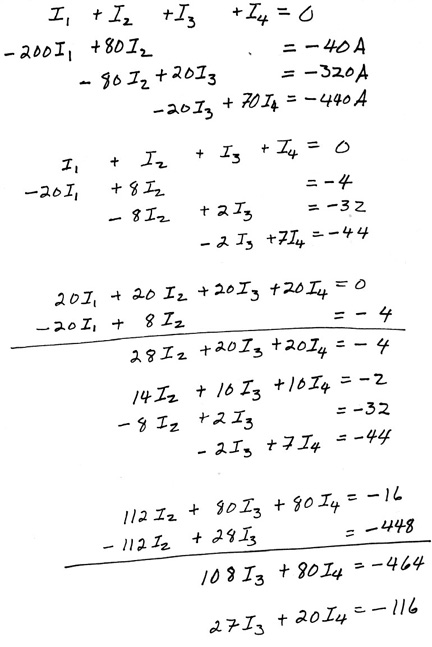 I₁ + I₂ + I₃ + I₄ = 0
-200I₁ + 80I₂ = -40A
-80I₂ + 20I₃ = -320A
-20I₃ + 70I₄ = -440A
I₁ + I₂ + I₃ + I₄ = 0
-20I₁ + 8I₂ = -4
-8I₂ + 2I₃ = -32
-2I₃ + 7I₄ = -44
20I₁ + 20I₂ + 20I₃ + 20I₄ = 0
-20I₁ + 8I₂ = -4
28I₂ + 20I₃ + 20I₄ = -4
14I₂ + 10I₃ + 10I₄ = -2
-8I₂ + 2I₃ = -32
-2I₃ + 7I₄ = -44
112I₂ + 80I₃ + 80I₄ = -16
-112I₂ + 28I₃ = -448
108I₃ + 80I₄ = -464
27I₃ + 20I₄ = -116